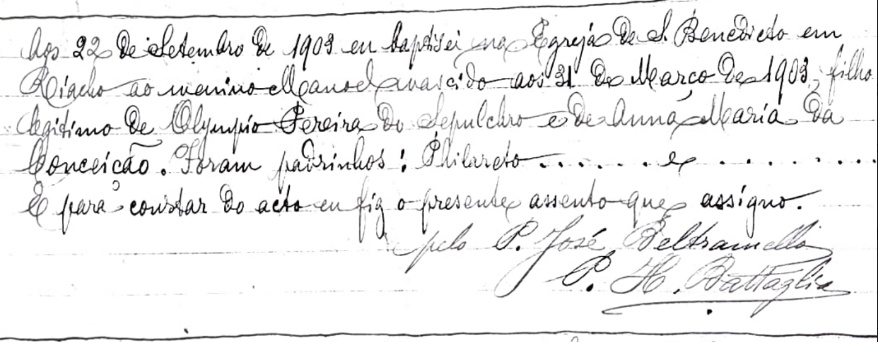 Aos 22 de Setembro de 1903 eu baptisei na Egreja de S. Benedicto em
Riacho ao menino Manoel nascido aos 31 de Março de 1903, filho
legitimo de Olympio Pereira do Sepulchro e de Anna Maria da
Conceição. Foram padrinhos: Philareto . . . . . . e . . . . . . . . .
E para constar do acto eu fiz o presente assento que assigno.
pelo P. José Beltramello
P. H. Battaglia